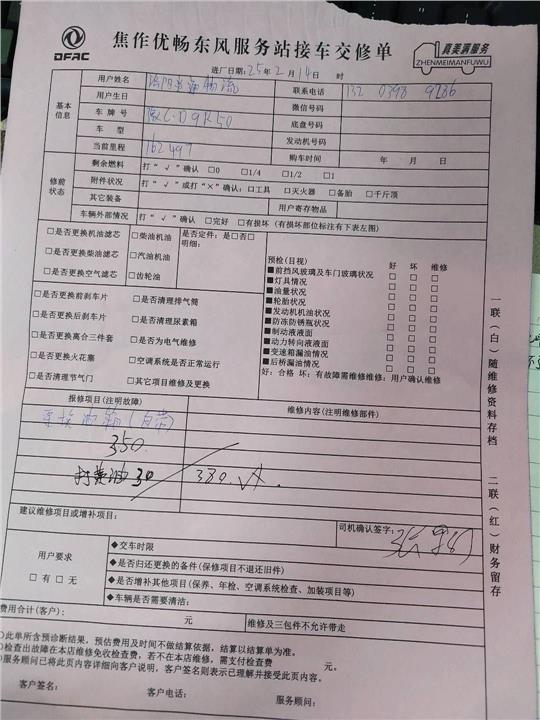 DFAC
焦作优畅东风服务站接车交修单
真美满服务
ZHENMEIMANFUWU
进厂日期: 25年 2月 14日 时
基本信息
用户姓名 物流 联系电话 132 0398 9286
用户生日 微信号码
车 牌 号 底盘号码
车 型 发动机号码
当前里程 162497 购车时间 年 月 日
修前状态
剩余燃料 打“√”确认 □0 □1/4 □1/2 □1
附件状况 打“√”或打“×”确认: □工具 □灭火器 □备胎 □千斤顶
其它装备 用户寄存物品
车辆外部情况 打“√”确认 □完好 □有损坏 (有损坏部位标注有下表左图)
□是否更换机油滤芯 □柴油机油 是否定件: 是□否□
□是否更换柴油滤芯 □汽油机油 明细:
□是否更换空气滤芯 □齿轮油
预检(目视) 好 坏 维修
■前挡风玻璃及车门玻璃状况 □ □ □
■灯具情况 □ □ □
■油量状况 □ □ □
■轮胎状况 □ □ □
■发动机机油状况 □ □ □
■防冻防锈瓶状况 □ □ □
■制动液液面 □ □ □
■动力转向液液面 □ □ □
■变速箱漏油情况 □ □ □
■后桥漏油情况 □ □ □
好: 合格 坏: 有故障需维修维修: 用户确认维修
□是否更换前刹车片 □是否清理排气筒
□是否更换后刹车片 □是否清理尿素箱
□是否更换离合三件套 □是否为电气维修
□是否更换火花塞 □空调系统是否正常运行
□是否清理节气门 □其它项目维修及更换
一联(白)随维修资料存档
二联(红)财务留存
报修项目(注明故障) 维修内容(注明维修部件)
更换油箱(自带)
350
打黄油 30 380
建议维修项目或增补项目:
司机确认签字:
用户要求
□有 □无
◆交车时限
◆是否归还更换的备件(保修项目不退还旧件)
◆是否增补其他项目(保养、年检、空调系统检查、加装项目等)
◆车辆是否需要清洁:
费用合计(客户): 元 维修及三包件不允许带走
◎此单所含预诊断结果, 预估费用及时间不做结算依据, 结算以结算单为准。
◎检查出故障在本店维修免收检查费, 若不在本店维修, 需支付检查费 元。
◎服务顾问已将此页内容详细向客户说明, 客户签名则表示已理解并接受此页内容。
客户签名: 客户电话: 服务顾问: